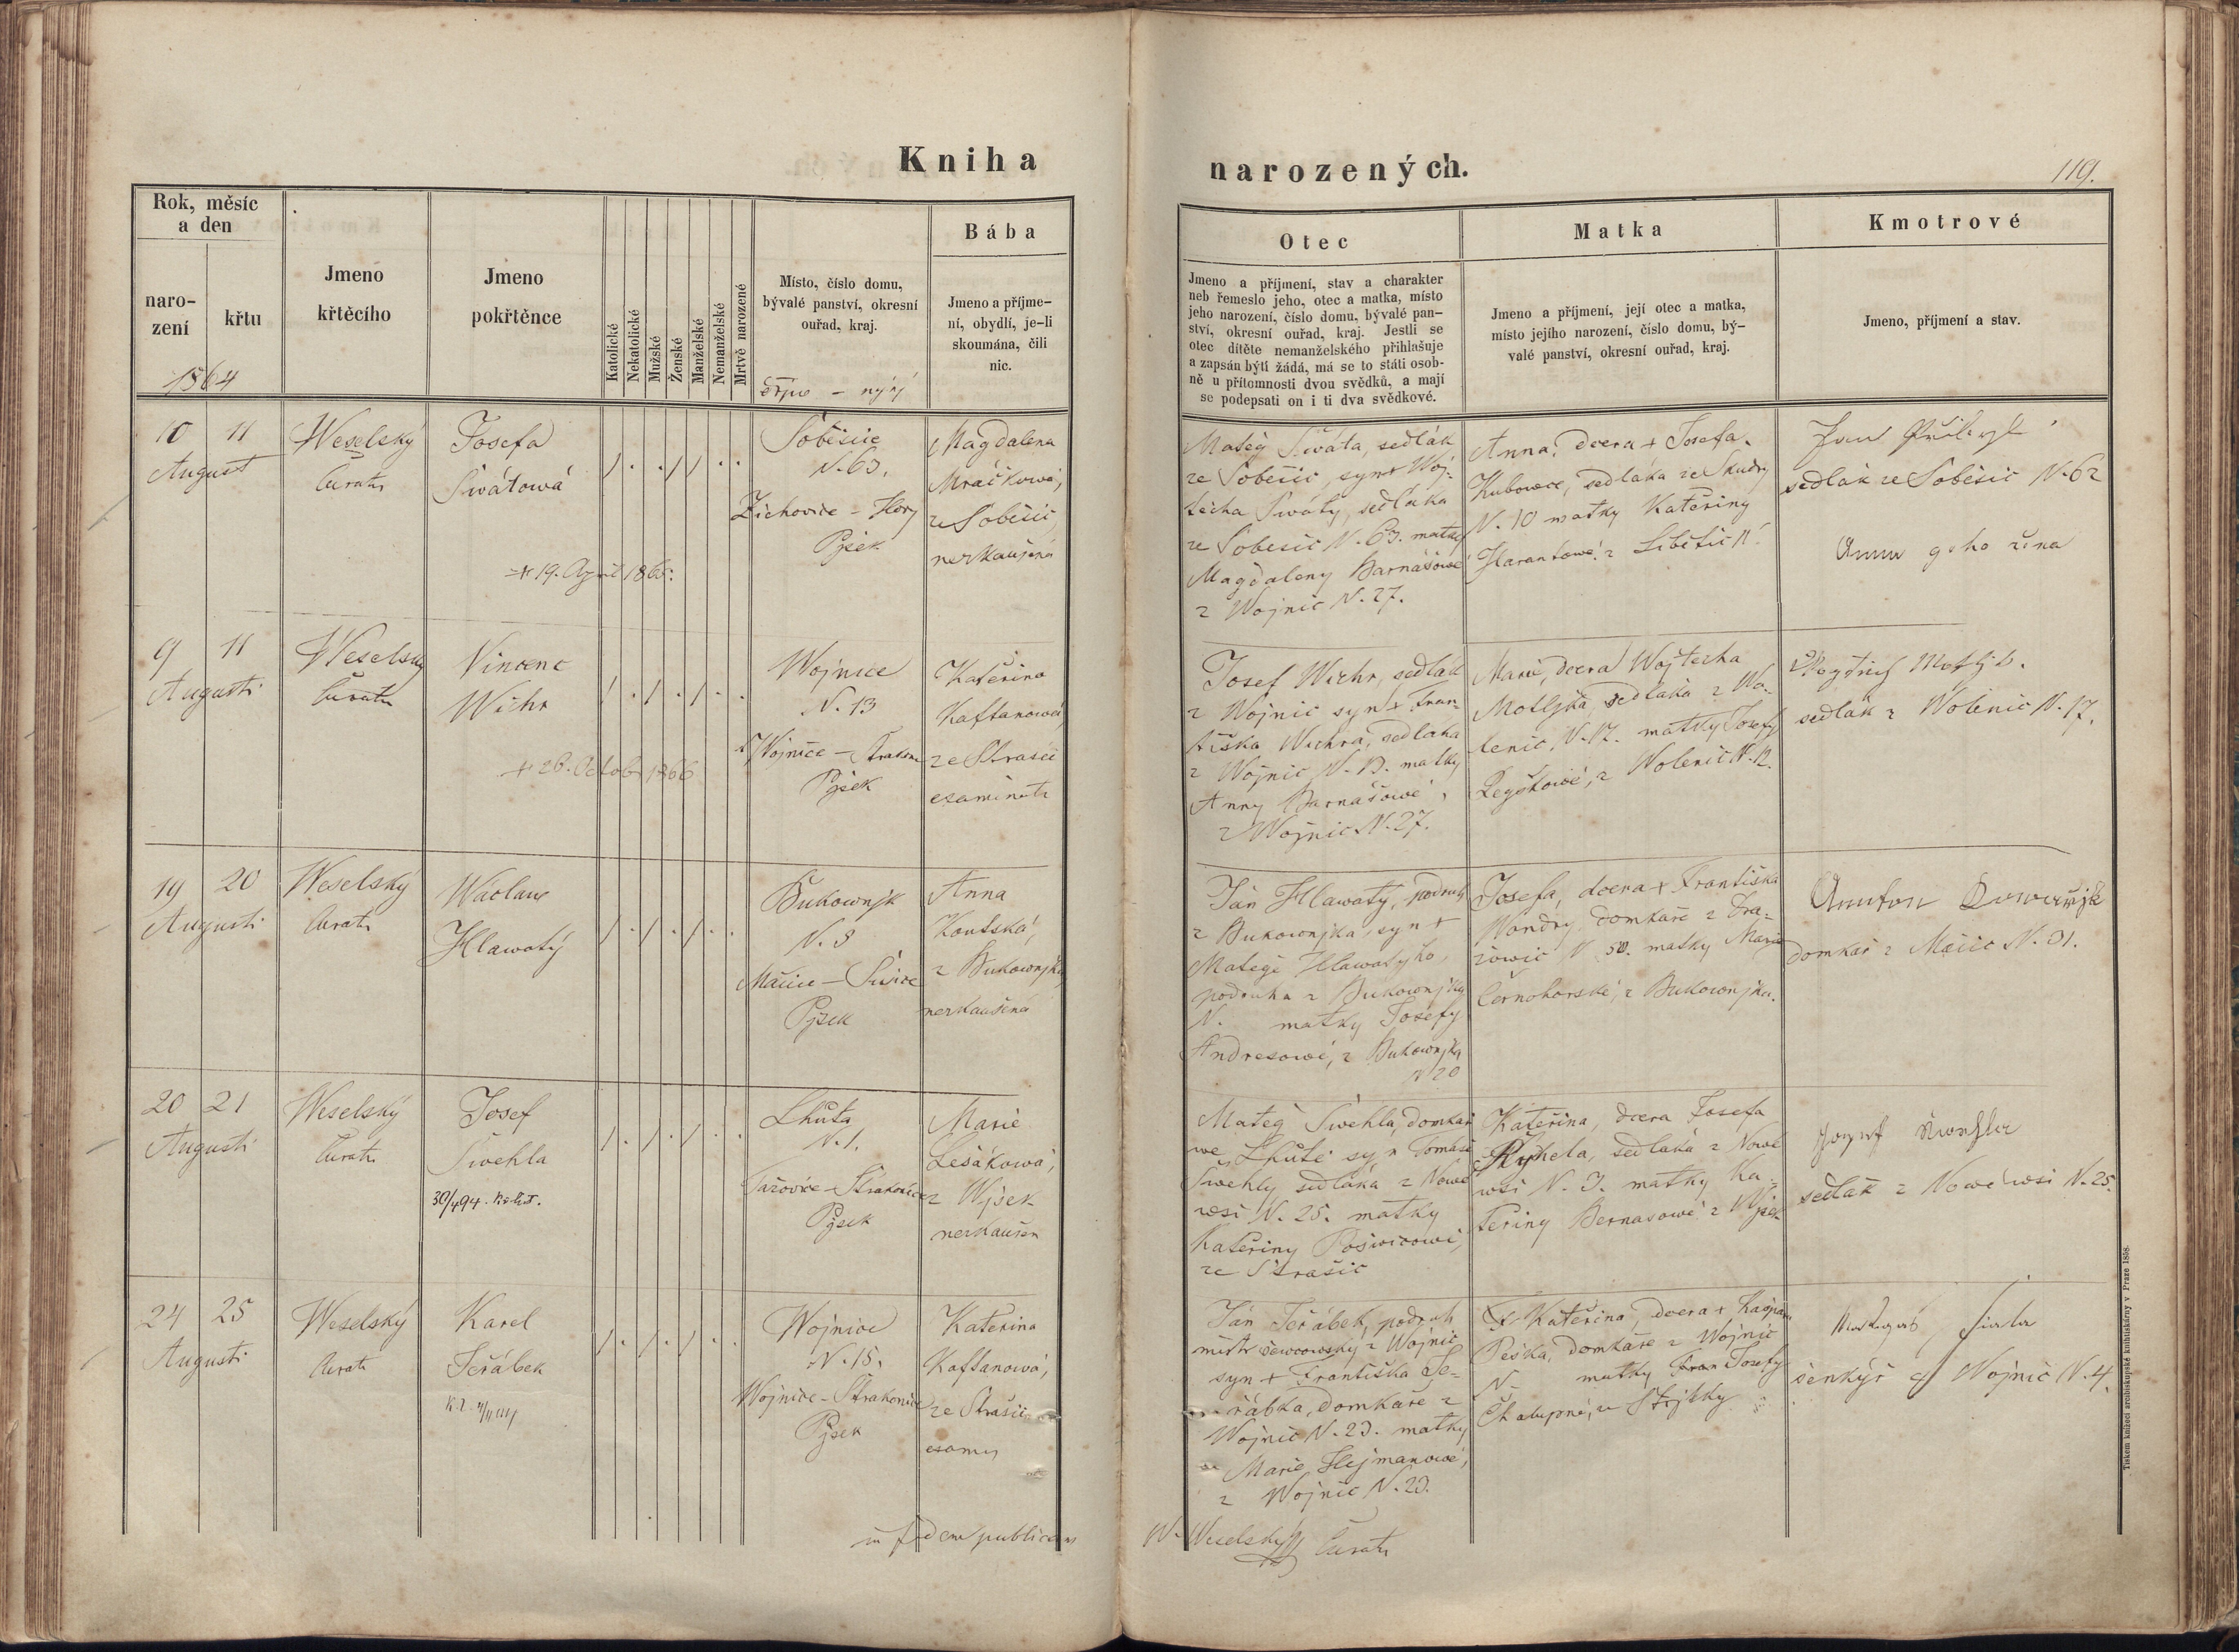 Kniha
narozených.
119.
Rok, měsíc
a den
naro-
zení
křtu
1864
Jmeno
křtěcího
Jmeno
pokřtěnce
Katolické
Nekatolické
Mužské
Ženské
Manželské
Nemanželské
Mrtvě narozené
Místo, číslo domu,
bývalé panství, okresní
ouřad, kraj.
Bába
Jmeno a příjme-
ní, obydlí, je-li
skoumána, čili
nic.
Otec
Jmeno a příjmení, stav a charakter
neb řemeslo jeho, otec a matka, místo
jeho narození, číslo domu, bývalé pan-
ství, okresní ouřad, kraj. Jestli se
otec dítěte nemanželského přihlašuje
a zapsán býti žádá, má se to státi osob-
ně u přítomnosti dvou svědků, a mají
se podepsati on i ti dva svědkové.
Matka
Jmeno a příjmení, její otec a matka,
místo jejího narození, číslo domu, bý-
valé panství, okresní ouřad, kraj.
Kmotrové
Jmeno, příjmení a stav.
10 11
August
Weselský
Curatr
Josefa
Swátowá
+ 19. April 1865.
Soběšice
N. 63.
Žichovice - Hory
Pjsek
Magdalena
Mráčkowá,
ze Soběšic,
nezkaušená
Matěg Swáta, sedlák
ze Soběšic, syn + Woj-
těcha Swáty, sedláka
ze Soběšic N. 63. matky
Magdaleny Barnášowé
z Wojnic N. 27.
Anna, dcera + Josefa
Kubowce, sedláka ze Skudry
N. 10 matky Kateřiny
Harantowé z Libětic N.
Jan
sedlák ze Soběšic N. 62
Anna geho žena
9 11
Augusti
Weselský
Curatr
Vincenc
Wichr
+ 26. Octob 1866
Wojnice
N. 13
Wojnice - Strakon
Pjsek
Kateřina
Kaftanowá,
ze Strašic
examinata
Josef Wichr, sedlák
z Wojnic syn + Fran-
tiška Wichra, sedláka
z Wojnic N. 13. matky
Anny Barnášowé,
z Wojnic N. 27.
Marie, dcera Wojtěcha
Motljka, sedláka z Wo-
lenic, N. 17. matky Josefy
z Wolenic N. 12.
sedlák z Wolenic N. 17.
19 20
Augusti
Weselský
Curatr
Wáclaw
Hlawatý
Bukownjk
N. 8
Mačice - Sušice
Pjsek
Anna
Koutská,
z Bukownjka,
nezkaušená
Ján Hlawatý, podruh
z Bukownjka, syn +
Matěge Hlawatýho,
podruha z Bukownjka
N. matky Josefy
Andresowé, z Bukownjka
N 20
Josefa, dcera + Františka
Wondry, domkáře z Dra-
žowic N. 50. matky Marie
Černohorské, z Bukownjka.
domkář z Mačic N. 31.
20 21
Augusti
Weselský
Curatr
Josef
Šwehla
Lhůta
N. 1.
Tažovice - Strakonice
Pjsek
Marie
Lešákowá,
z Wjsek
nezkaušen
Matěg Šwehla, domkář
we Lhůtě syn Tomáše
Šwehly sedláka z Nowé
wsi N. 25. matky
Kateřiny
ze Strašic
Kateřina, dcera Josefa
Rýhela, sedláka z Nowé
wsi N. 3. matky Ka-
teřiny Bernasowé z Wjsek
Josef Šwehla
sedlák z Nowé wsi N. 25.
24 25
Augusti
Weselský
Curatr
Karel
Jeřábek
Wojnice
N. 15.
Wojnice - Strakonice
Pjsek
Kateřina
Kaftanowá,
ze Strašic
examin
Ján Jeřábek, podruh
mistr šewcowský z Wojnic
syn + Františka Je-
řábka, domkáře z
Wojnic N. 23. matky
Marie Hejmanowé,
z Wojnic N. 23.
Kateřina, dcera + Kašpara
Peška, domkáře z Wojnic
N. matky Josefy
Chalupné, ze Střjtky
Fiala
šenkýř z Wojnic N. 4.
in fidem publicam
W. Weselský Curatr
Tiskem knížecí arcibiskupské knihtiskárny v Praze 1858.